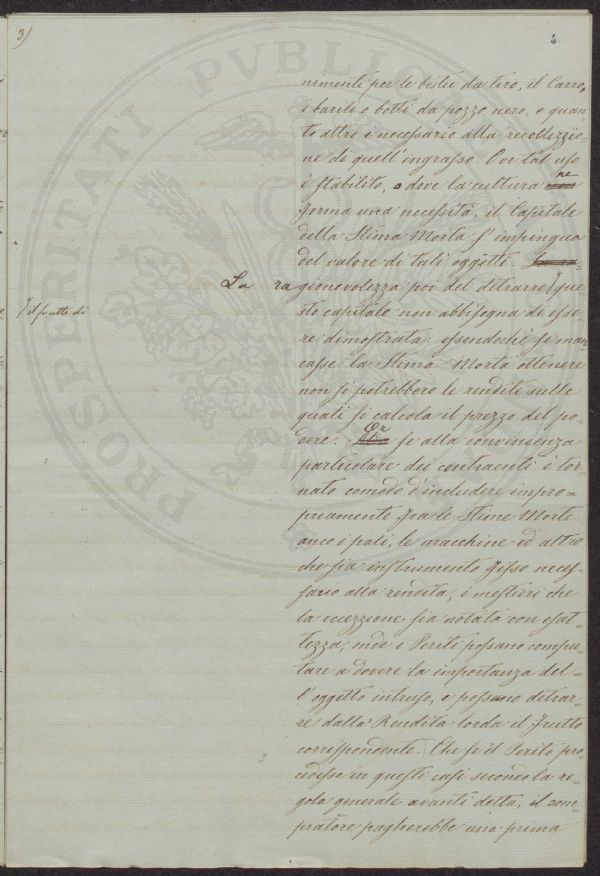 3)
4
nimenti per le bestie da tiro, il Carro,
i barili o botti da pozzo nero, e quan-
to altro è necessario alla recollezzio-
ne di quell'ingrasso. Ove tal uso
è stabilito, o dove la cultura ne
forma una necessità, il Capitale
della Stima Morta s'impingua
del valore di tali oggetti.
La ragionevolezza poi del detrarre / que-
/ il frutto di
sto capitale non abbisogna di esse-
re dimostrata: essendochè se man-
casse la Stima Morta ottenere
non si potrebbero le rendite sulle
quali si calcola il prezzo del po-
dere. Or se alla convenienza
particolare dei contraenti è tor-
nato comodo d'includere impro-
priamente fra le Stime Morte
anco i pali, le macchine ed altro
che sia instrumento fisso neces-
sario alla rendita, è mestieri che
la eccezzione sia notata con esat-
tezza, onde i Periti possano compu-
tare a dovere la importanza del-
l'oggetto intruso, e possano detrar-
re dalla Rendita lorda il frutto
corrispondente. Che se il Perito pro-
cedesse in questi casi secondo la re-
gola generale avanti detta, il com-
pratore pagherebbe una prima
PROSPERITATI PVBLIC